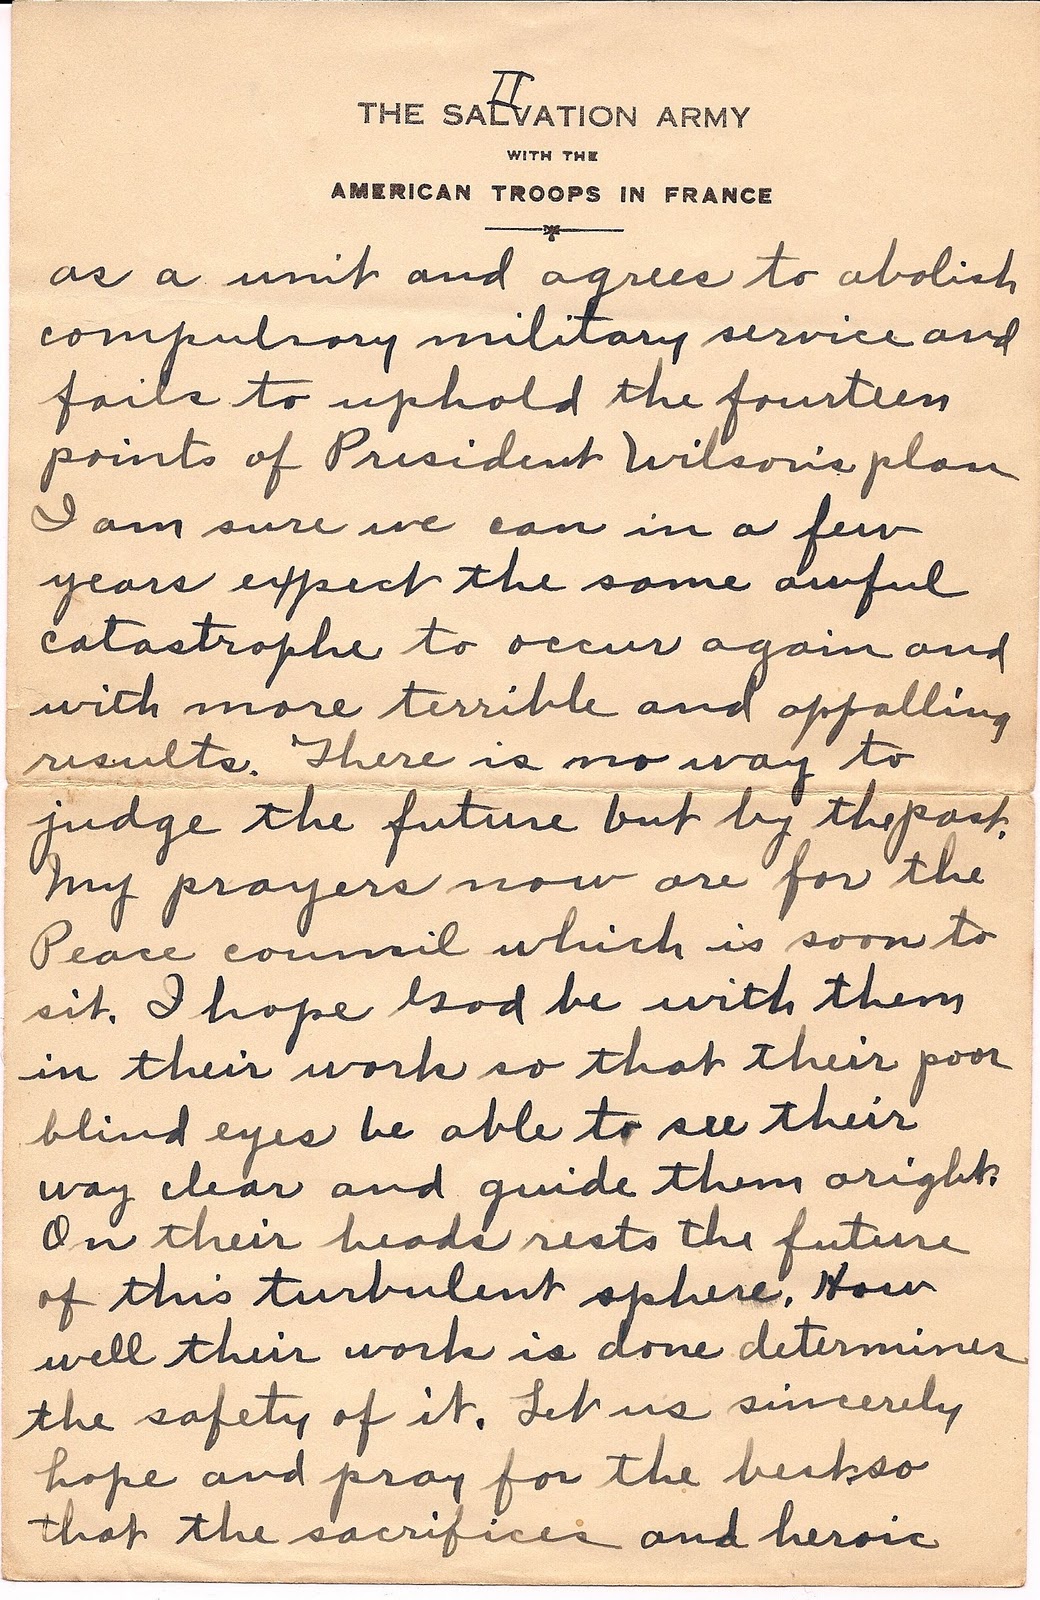 II
THE SALVATION ARMY
WITH THE
AMERICAN TROOPS IN FRANCE
as a unit and agrees to abolish
compulsory military service and
fails to uphold the fourteen
points of President Wilson's plan
I am sure we can in a few
years expect the same awful
catastrophe to occur again and
with more terrible and appalling
results. There is no way to
judge the future but by the past.
My prayers now are for the
Peace council which is soon to
sit. I hope God be with them
in their work so that their poor
blind eyes be able to see their
way clear and guide them aright.
On their heads rests the future
of this turbulent sphere. How
well their work is done determines
the safety of it. Let us sincerely
hope and pray for the best so
that the sacrifices and heroic